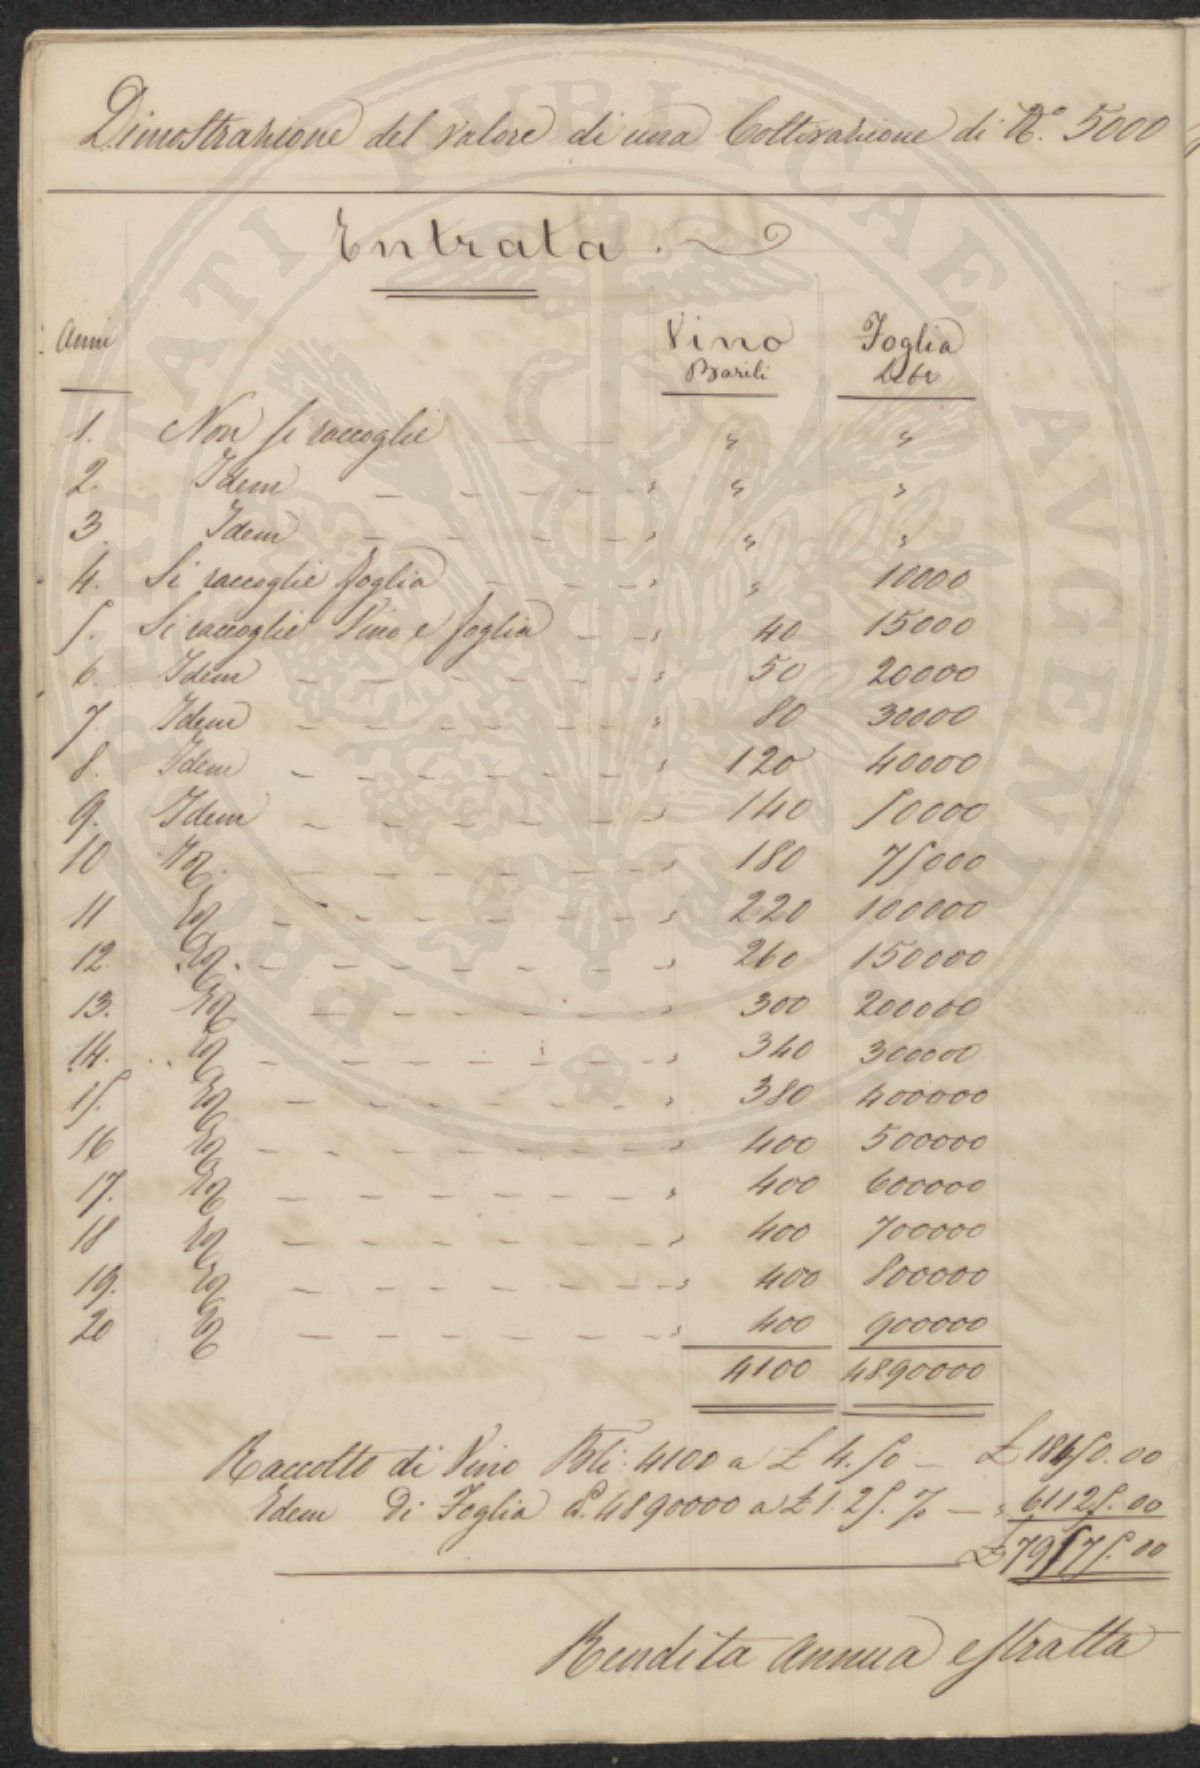 Dimostrazione del valore di una Coltivazione di N.º 5000
Entrata.
Anni Vino Foglia
Barili Libe
1. Non si raccoglie " "
2. Idem " "
3. Idem " "
4. Si raccoglie foglia " 10000
5. Si raccoglie Vino e foglia 40 15000
6. Idem 50 20000
7. Idem 80 30000
8. Idem 120 40000
9. Idem 140 50000
10 180 75000
11 220 100000
12. 260 150000
13. 300 200000
14. 340 300000
15. 380 400000
16 400 500000
17. 400 600000
18 400 700000
19. 400 800000
20 400 900000
4100 4890000
Raccolto di Vino Bli. 4100 a £ 4.50 — £ 18450.00
Idem Di Foglia £. 4890000 a £ 1.25. % — " 61125.00
£ 79575.00
Rendita Annua estratta
PUBLICAE UTILITATI AUGENDAE